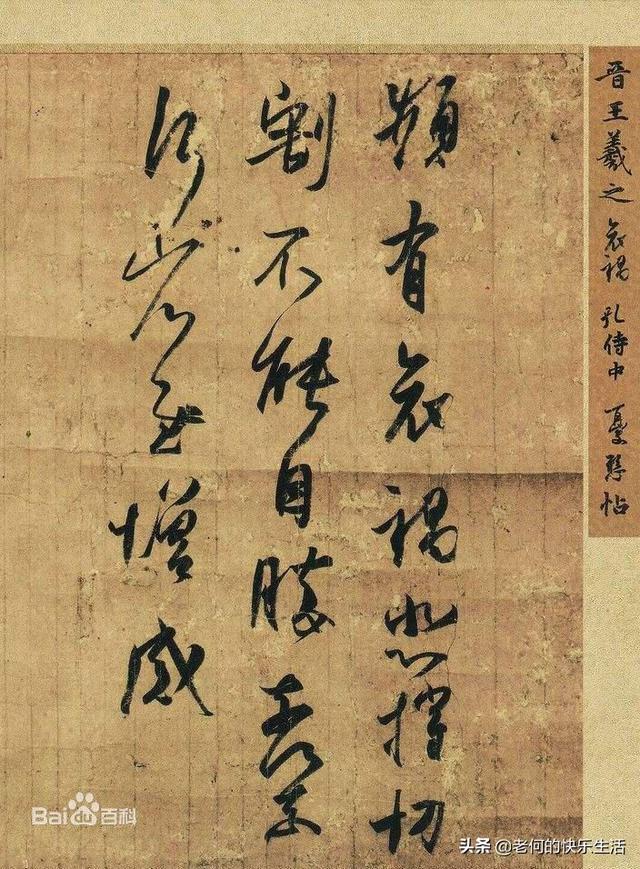 晋王羲之 哀禍 孔侍中 憂懸帖
頻有哀禍悲摧切
割不能自勝奈何奈
何省慰增感
Bai百科
头条 @老何的快乐生活